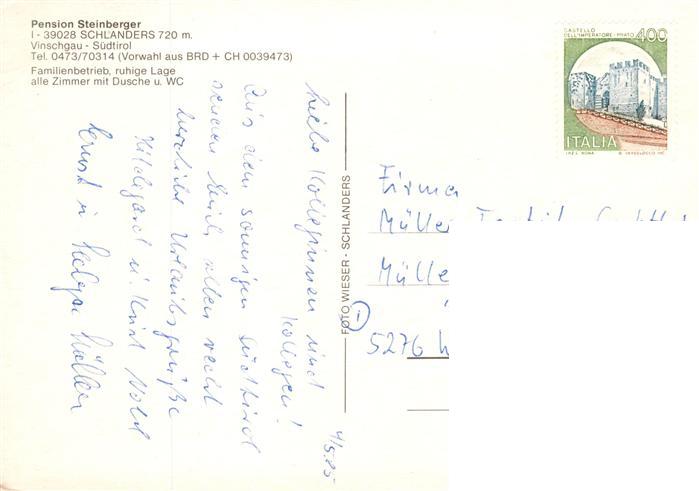 Pension Steinberger
I - 39028 SCHLANDERS 720 m.
Vinschgau - Südtirol
Tel. 0473/70314 (Vorwahl aus BRD + CH 0039473)
Familienbetrieb, ruhige Lage
alle Zimmer mit Dusche u. WC
4/5.85
Liebe Kolleginnen und
Kollegen!
Aus dem sonnigen Südtirol
senden Euch allen recht
herzliche Urlaubsgrüße
Hildegard u. Kurt
Ernst u Helga Müller
FOTO WIESER - SCHLANDERS
CASTELLO
DELL'IMPERATORE - PRATO
400
ITALIA
I.P.Z.S. ROMA
Firma
Müller
Mülle
5276